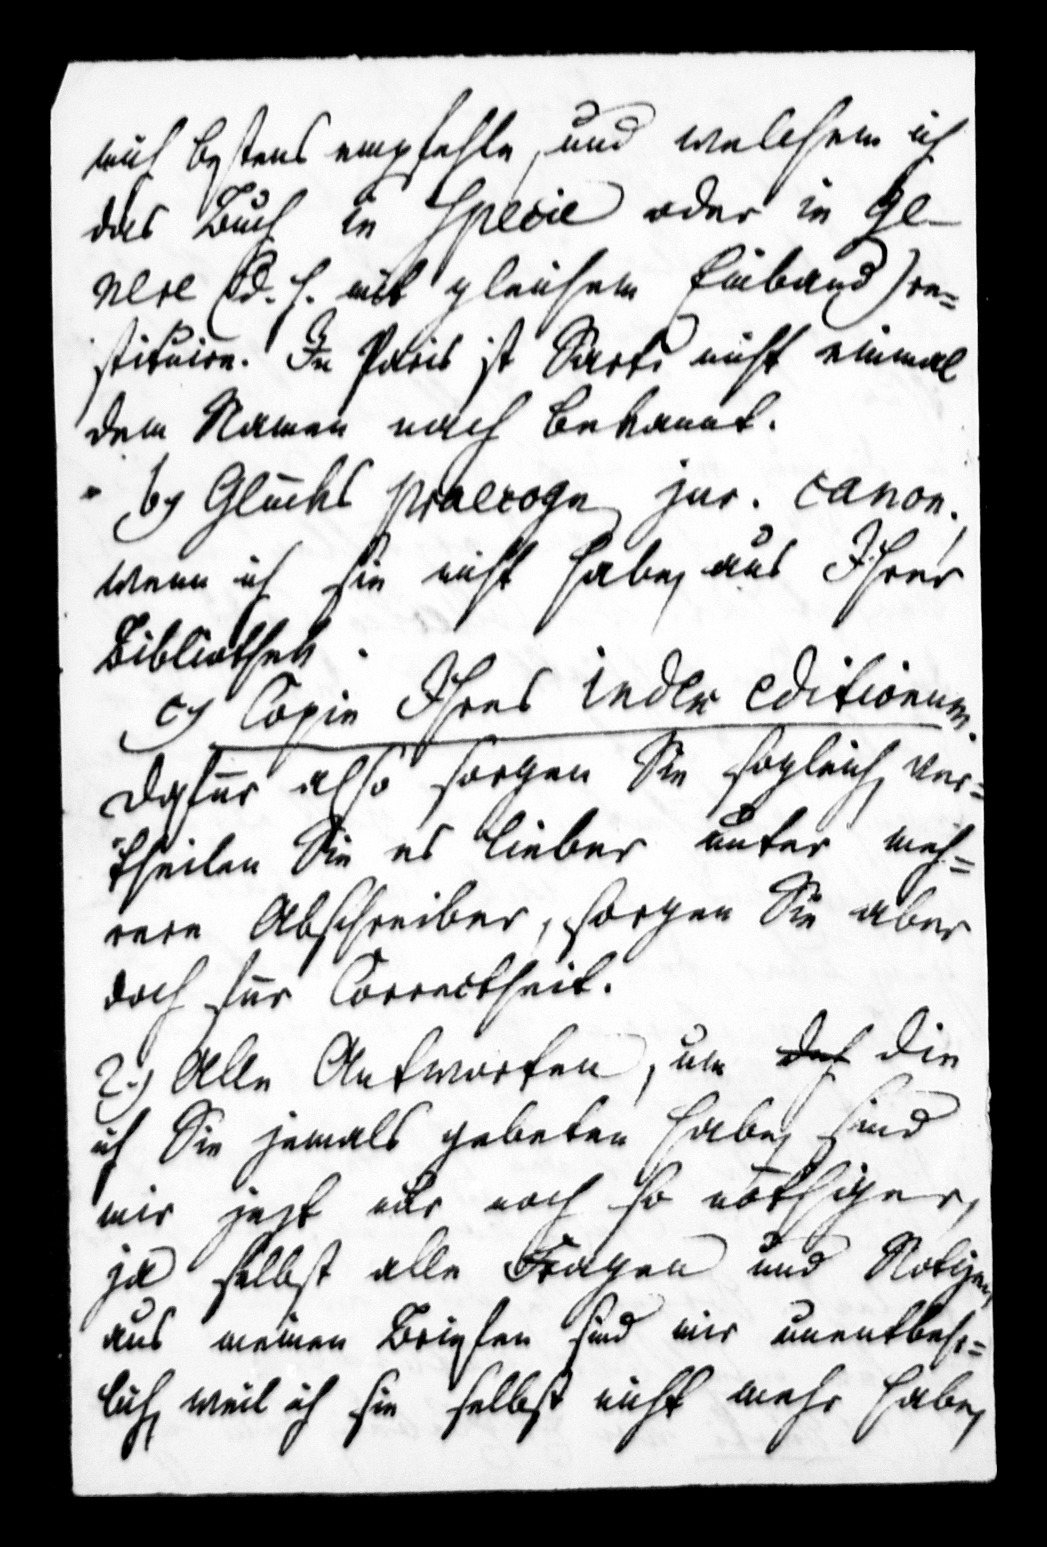 mich bestens empfehle, und welchem ich
das Buch in Specie oder in ge-
nere (d. h. mit gleichem Einband) re=
stituire. In Paris ist Sarti nicht einmal
dem Namen nach bekannt.
b) Glücks praecogn. jur. canon.,
wenn ich sie nicht habe, aus Ihrer
Bibliothek.
c) Copie Ihres index editionum.
Dafür also sorgen Sie sogleich, ver=
theilen Sie es lieber unter meh=
rere Abschreiber, sorgen Sie aber
doch für Correctheit.
2.) Alle Antworten, um die
ich Sie jemals gebeten habe, sind
mir jezt nur noch so nöthiger,
ja selbst alle Fragen und Notizen
aus meinen Briefen sind mir unentbehr=
lich, weil ich sie selbst nicht mehr habe,